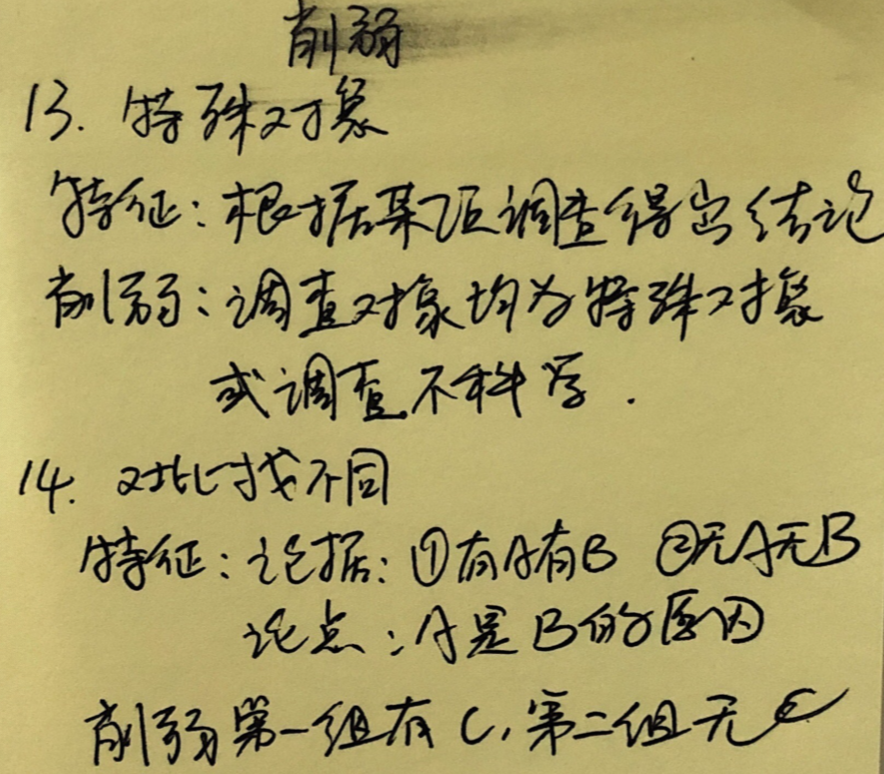 削弱
13. 特殊对象
特征：根据某项调查得出结论
削弱：调查对象均为特殊对象
或调查不科学.
14. 对比找不同
特征：论据：①有A有B ②无A无B
论点：A是B的原因
削弱第一组有C，第二组无C